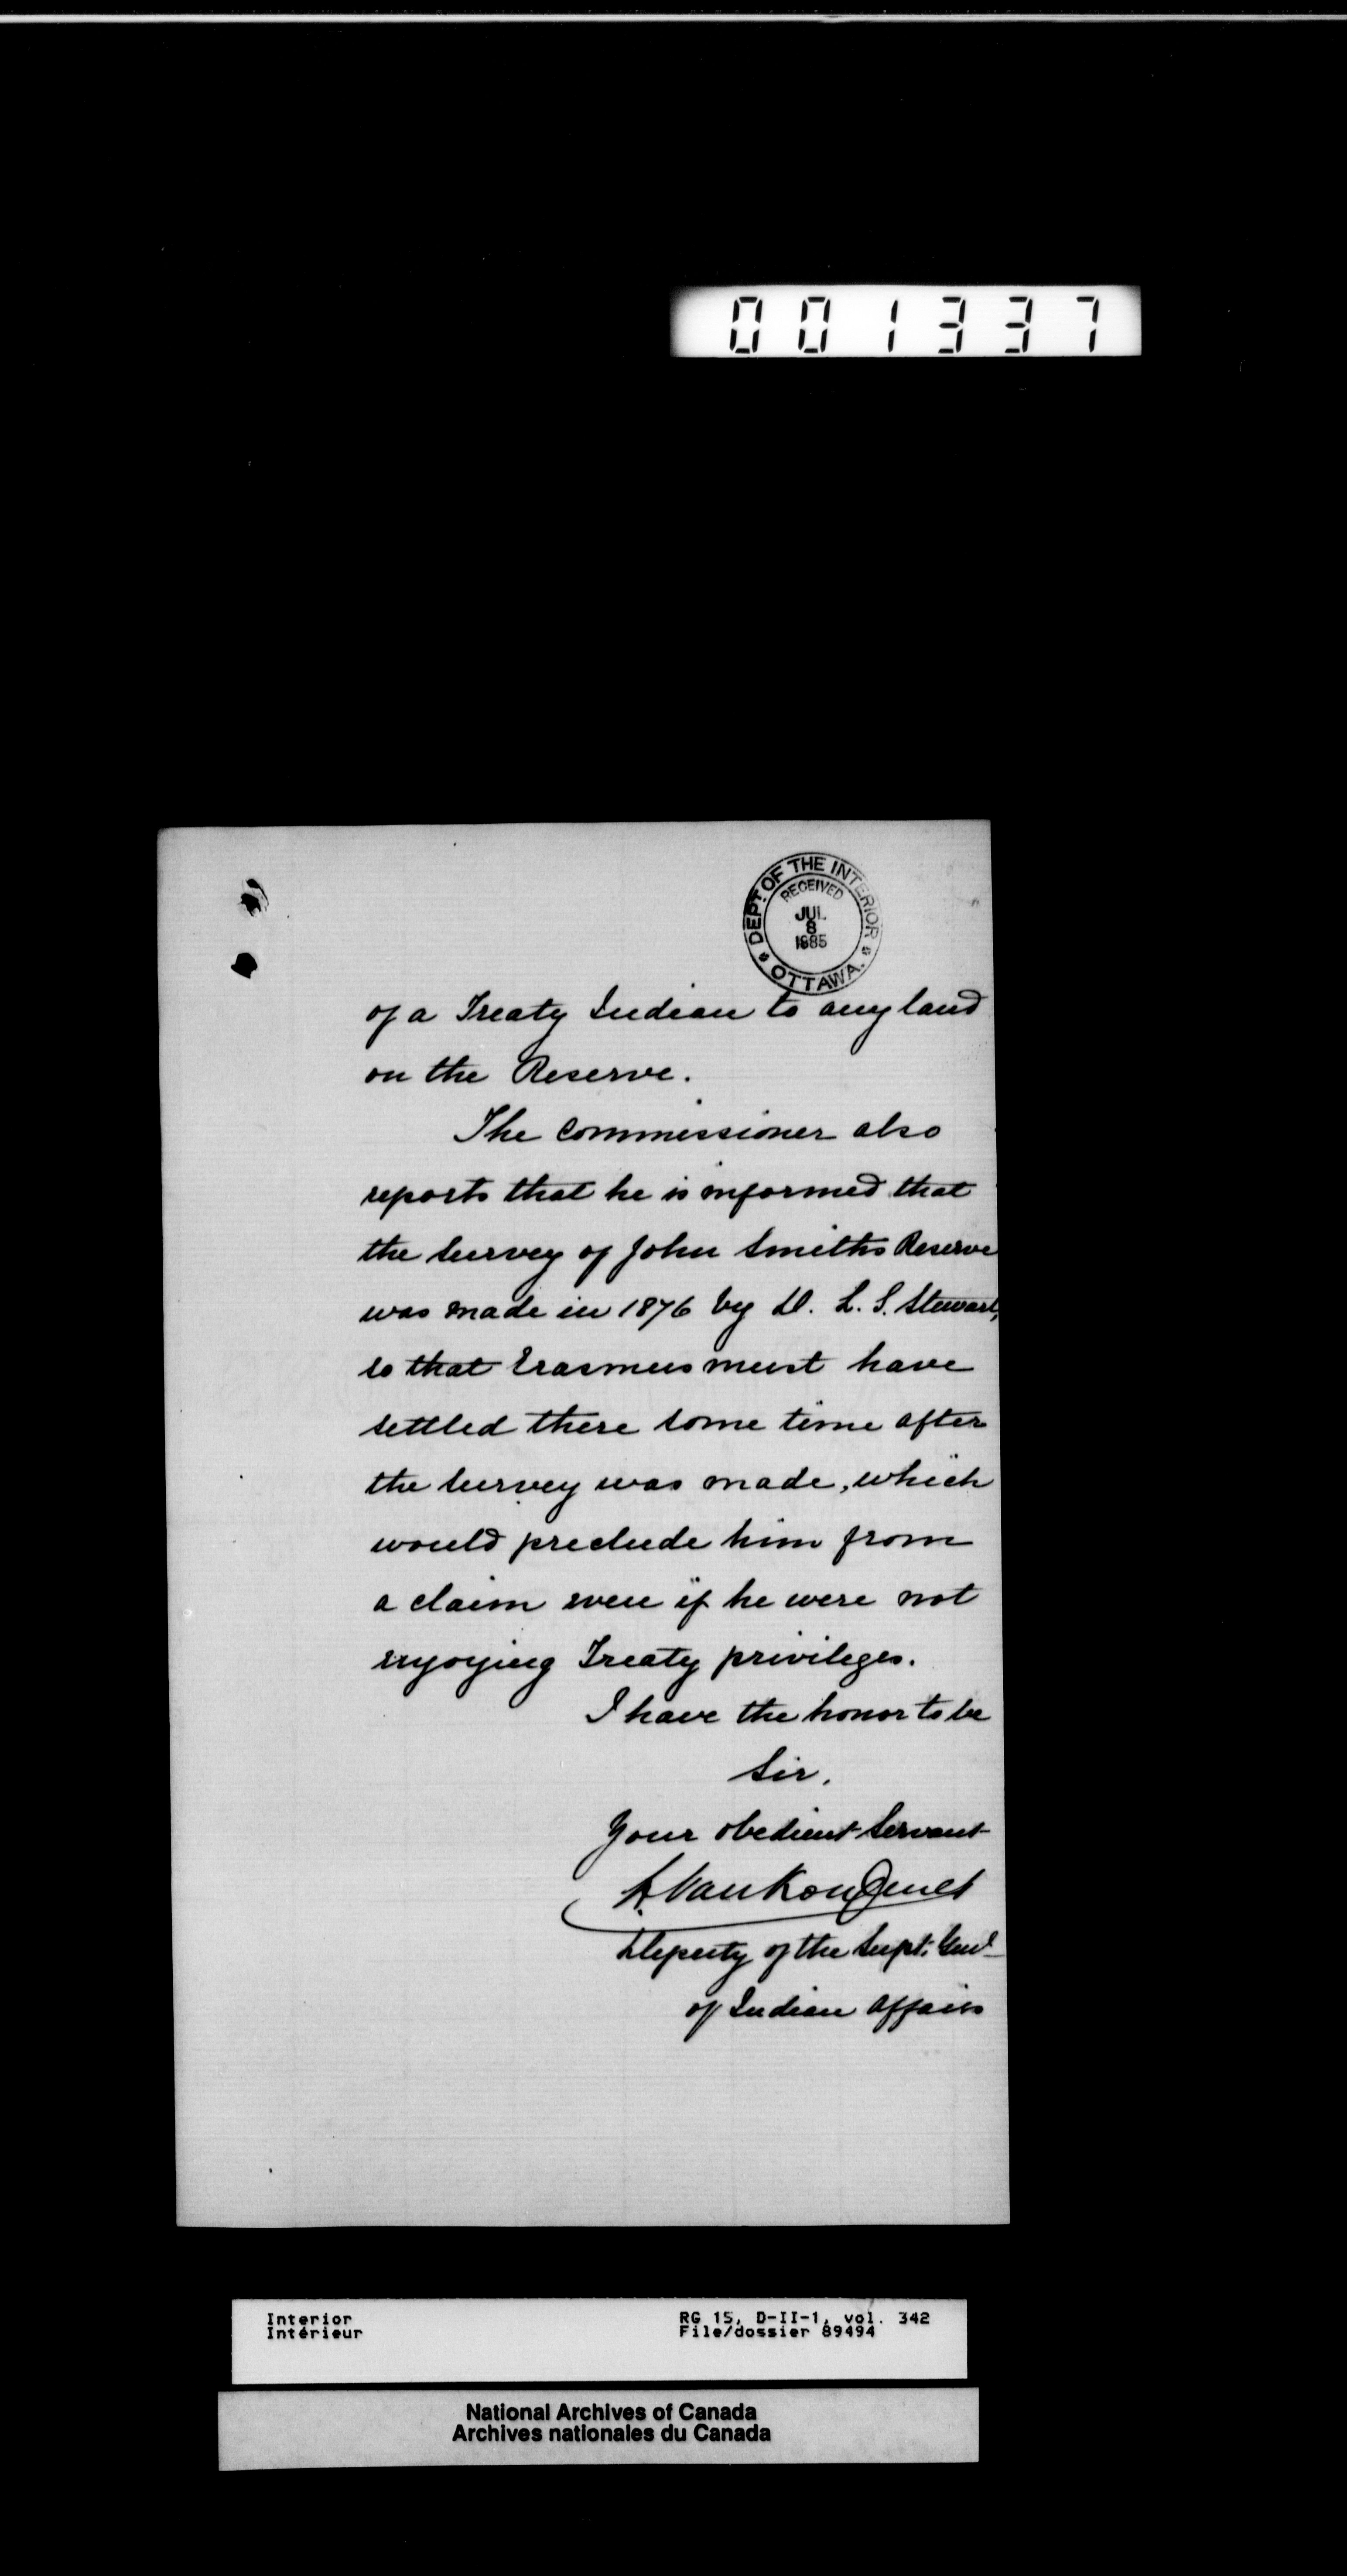 001337
DEPT. OF THE INTERIOR
RECEIVED
JUL
8
1885
OTTAWA.
of a Treaty Indian to any land
on the Reserve.
The Commissioner also
reports that he is informed that
the Survey of John Smiths Reserve
was made in 1876 by D. L. S. Stewart,
so that Erasmus must have
settled there some time after
the Survey was made, which
would preclude him from
a claim even if he were not
enjoying Treaty privileges.
I have the honor to be
Sir,
Your obedient Servant
L. VanKoughnet
Deputy of the Supt. Genl
of Indian Affairs
Interior
Intérieur
RG 15, D-II-1, vol. 342
File/dossier 89494
National Archives of Canada
Archives nationales du Canada